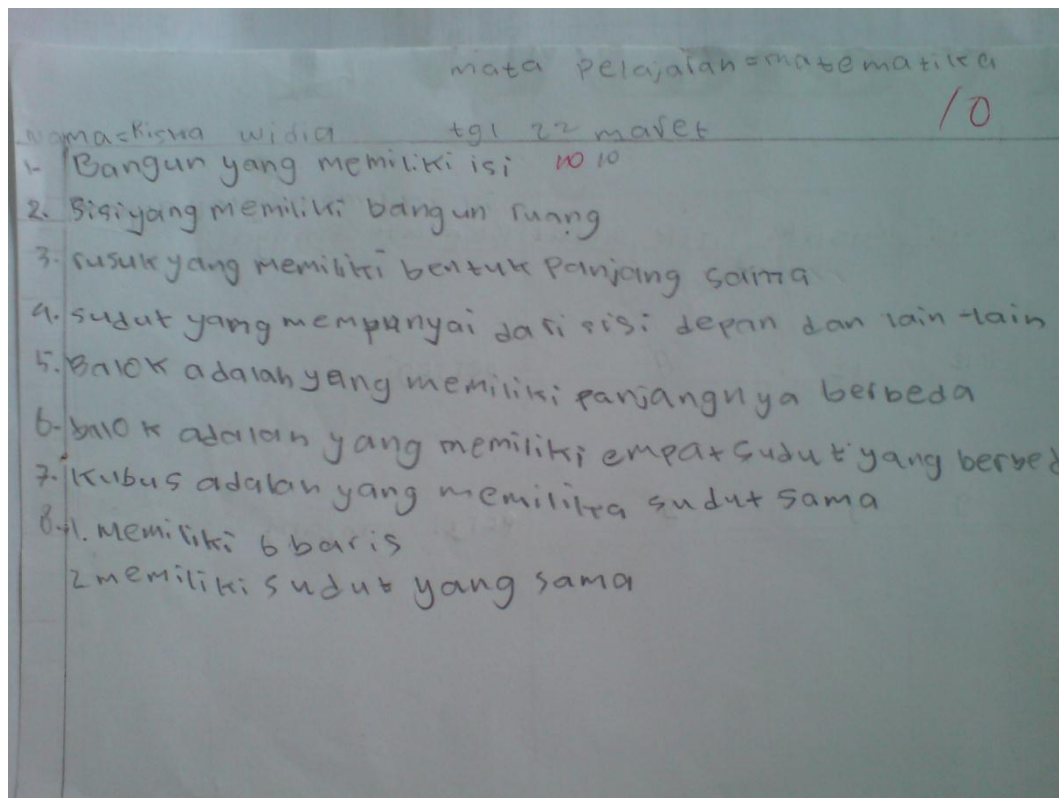 mata pelajaran=matematika
10
Nama=Kisna widia tgl 22 maret
1. Bangun yang memiliki isi 10 10
2. Sisiyang memiliki bangun ruang
3. rusuk yang memiliki bentuk panjang sama
4. sudut yang mempunyai dari sisi depan dan lain-lain
5. Balok adalah yang memiliki panjangnya berbeda
6. balok adalah yang memiliki empat sudut yang berbed
7. Kubus adalah yang memilika sudut sama
8. 1. memiliki 6 baris
2 memiliki sudut yang sama